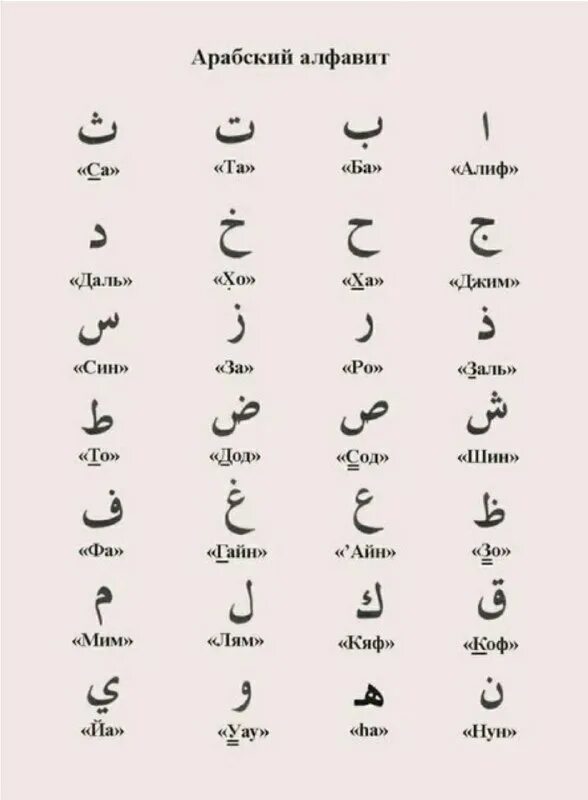 Арабский алфавит
ا ب ت ث
«Алиф» «Ба» «Та» «Са»
ج ح خ د
«Джим» «Ха» «Хо» «Даль»
ذ ر ز س
«Заль» «Ро» «За» «Син»
ش ص ض ط
«Шин» «Сод» «Дод» «То»
ظ ع غ ف
«Зо» «’Айн» «Гайн» «Фа»
ق ك ل م
«Коф» «Кяф» «Лям» «Мим»
ن هـ و ي
«Нун» «hа» «Уау» «Йа»